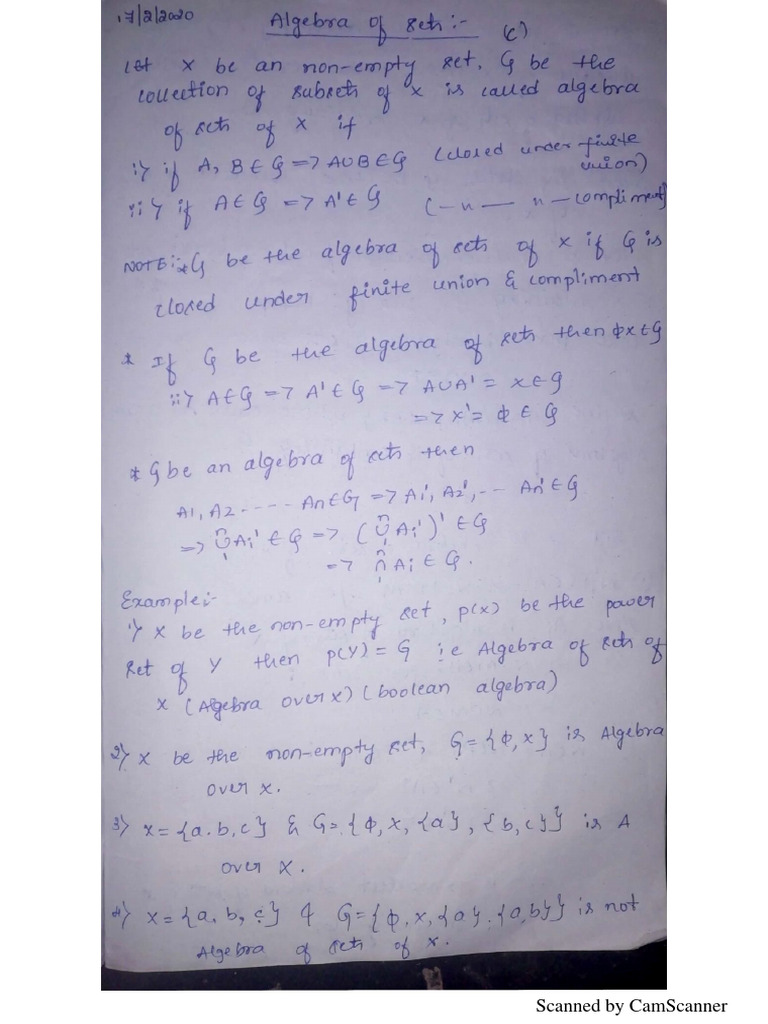 17/2/2020 Algebra of sets:- (C)
Let X be an non-empty set, G be the
collection of subsets of X is called algebra
of sets of X if
i> if A, B ∈ G => A∪B ∈ G (closed under finite
union)
ii> if A ∈ G => A' ∈ G (-"- -"- compliment)
NOTE:- * G be the algebra of sets of X if G is
closed under finite union & compliment
* If G be the algebra of sets then ϕ, X ∈ G
ii> A ∈ G => A' ∈ G => A∪A' = X ∈ G
=> X' = ϕ ∈ G
* G be an algebra of sets then
A1, A2 ..... An ∈ G => A1', A2', -- An' ∈ G
=> n∪1 Ai' ∈ G => (n∪1 Ai')' ∈ G
=> n∩1 Ai ∈ G.
Example:-
1> X be the non-empty set, p(x) be the power
set of Y then p(Y) = G i.e Algebra of sets of
X (Algebra over X) (boolean algebra)
2> X be the non-empty set, G = {ϕ, X} is Algebra
over X.
3> X = {a, b, c} & G = {ϕ, X, {a}, {b, c}} is A
over X.
4> X = {a, b, c} & G = {ϕ, X, {a}, {a, b}} is not
Algebra of sets of X.
Scanned by CamScanner